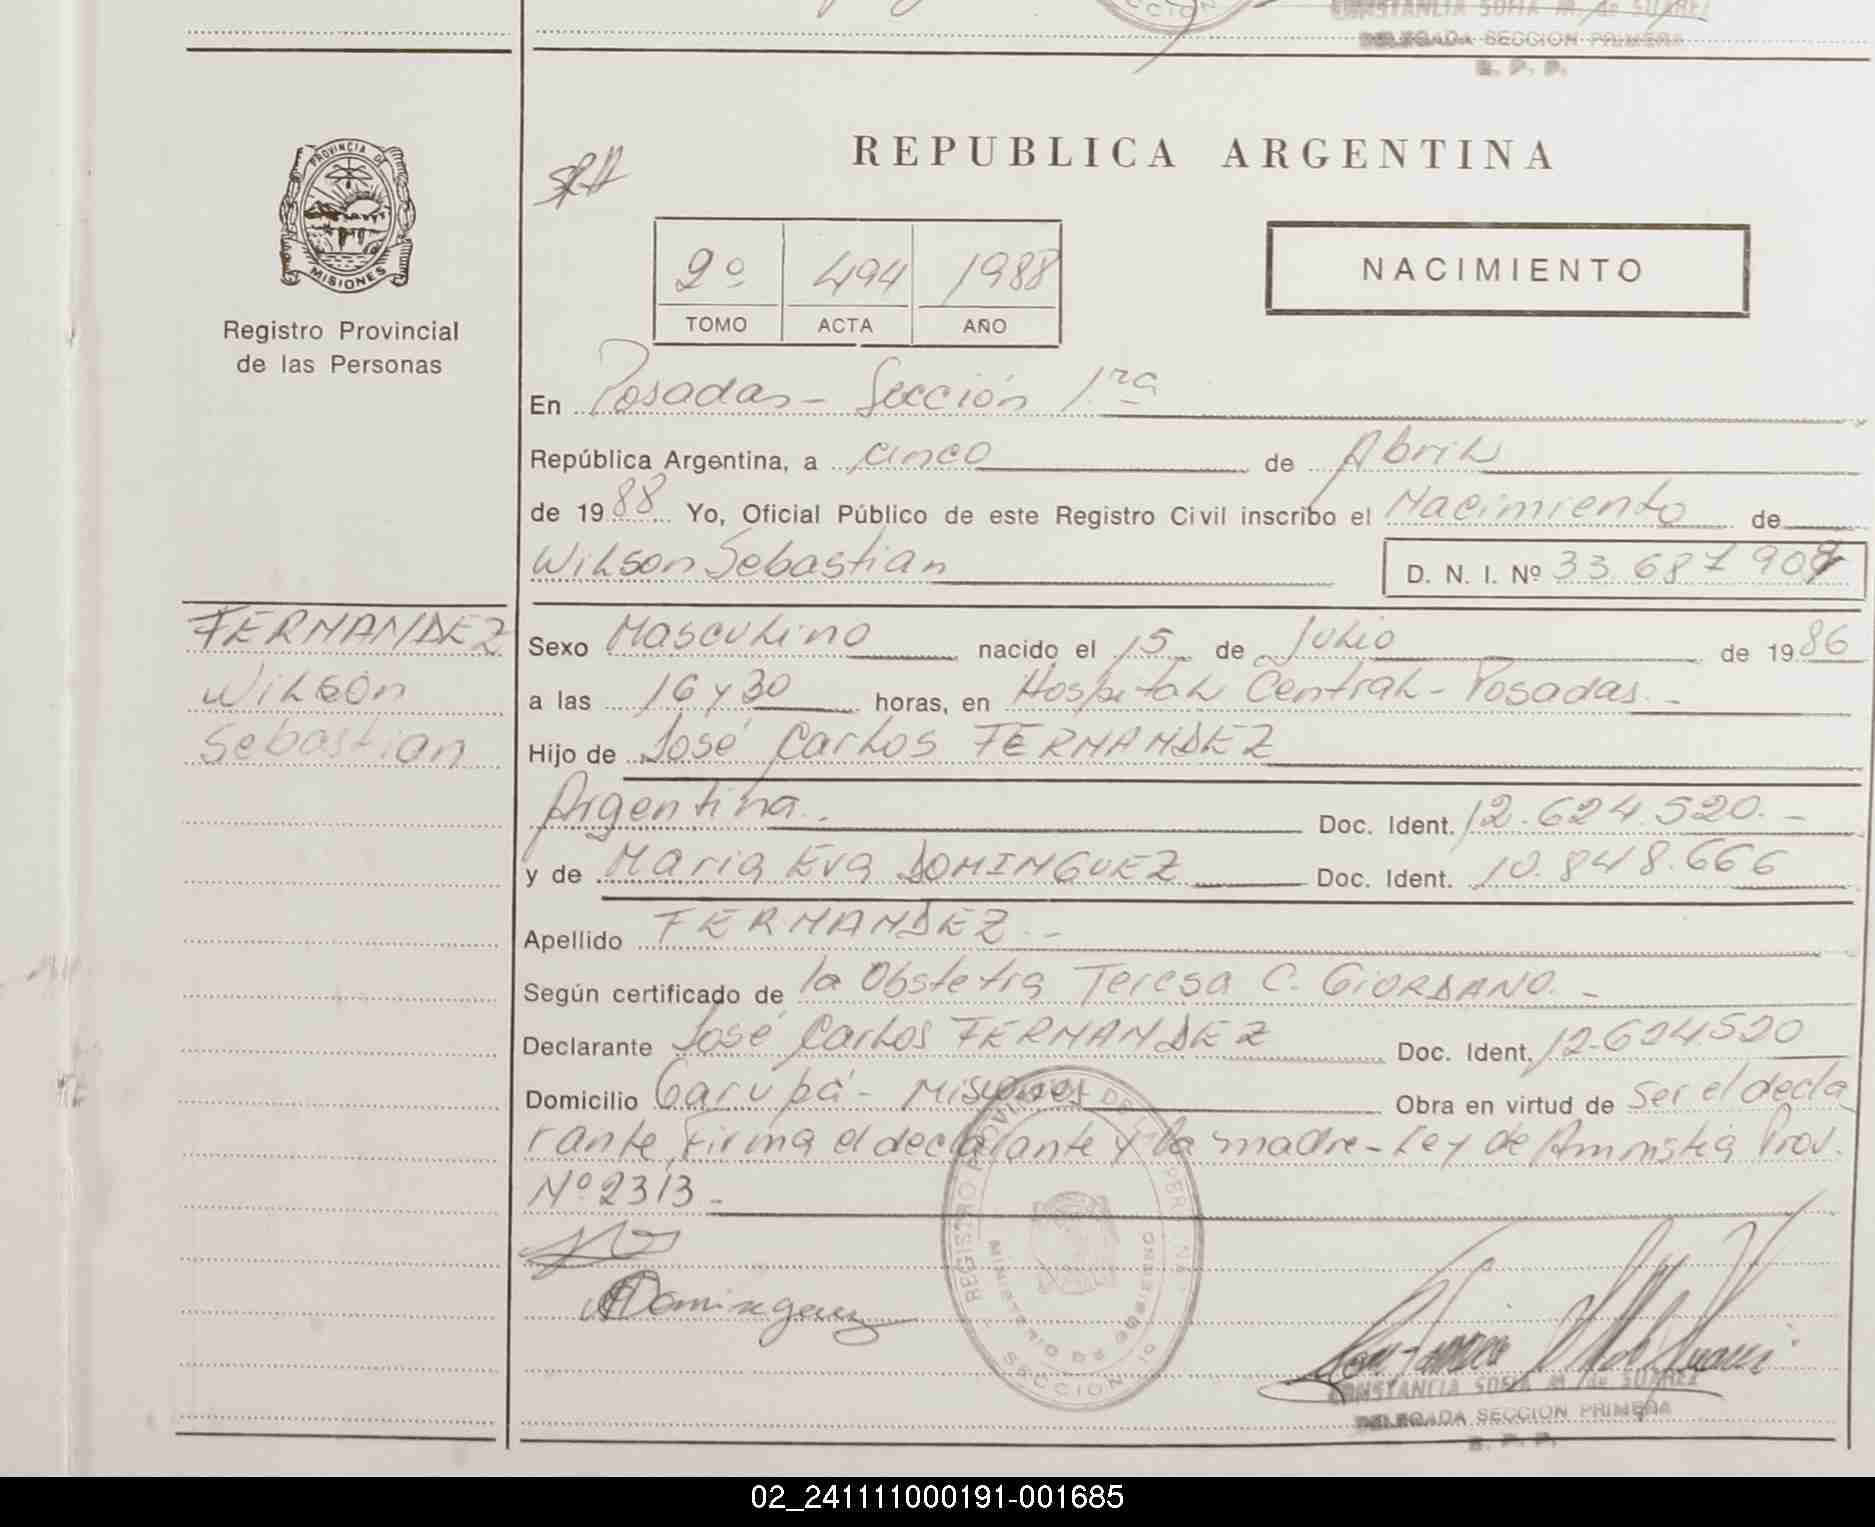 CONSTANCIA SOFIA M. de SUAREZ
DELEGADA SECCION PRIMERA
R. P. P.
PROVINCIA DE
MISIONES
Registro Provincial
de las Personas
REPUBLICA ARGENTINA
2º 494 1988
TOMO ACTA AÑO
NACIMIENTO
En Posadas - Sección 1ra
República Argentina, a cinco de Abril
de 1988 Yo, Oficial Público de este Registro Civil inscribo el Nacimiento de
Wilson Sebastian D. N. I. Nº 33.687.909
FERNANDEZ
Wilson
Sebastian
Sexo Masculino nacido el 15 de Julio de 1986
a las 16 y 30 horas, en Hospital Central - Posadas. -
Hijo de José Carlos FERNANDEZ
Argentina. - Doc. Ident. 12.624.520. -
y de Maria Eva DOMINGUEZ Doc. Ident. 10.848.666
Apellido FERNANDEZ. -
Según certificado de la Obstetra Teresa C. GIORDANO. -
Declarante José Carlos FERNANDEZ Doc. Ident. 12.624520
Domicilio Garupá - Misiones Obra en virtud de Ser el decla
rante, Firma el declarante y la madre - Ley de Amnistia Prov.
Nº 2313 -
Dominguez
REGISTRO PROVINCIAL DE
MINISTERIO DE GOBIERNO
SECCION
CONSTANCIA SOFIA M. de SUAREZ
DELEGADA SECCION PRIMERA
R. P. P.
02_241111000191-001685